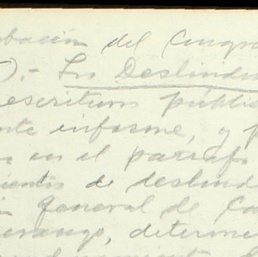 bación del Congre
).- Los Deslindes
escritura públi
nte informe, y p
en el párrafo
ientos de deslind
general de Ca
erango, determi